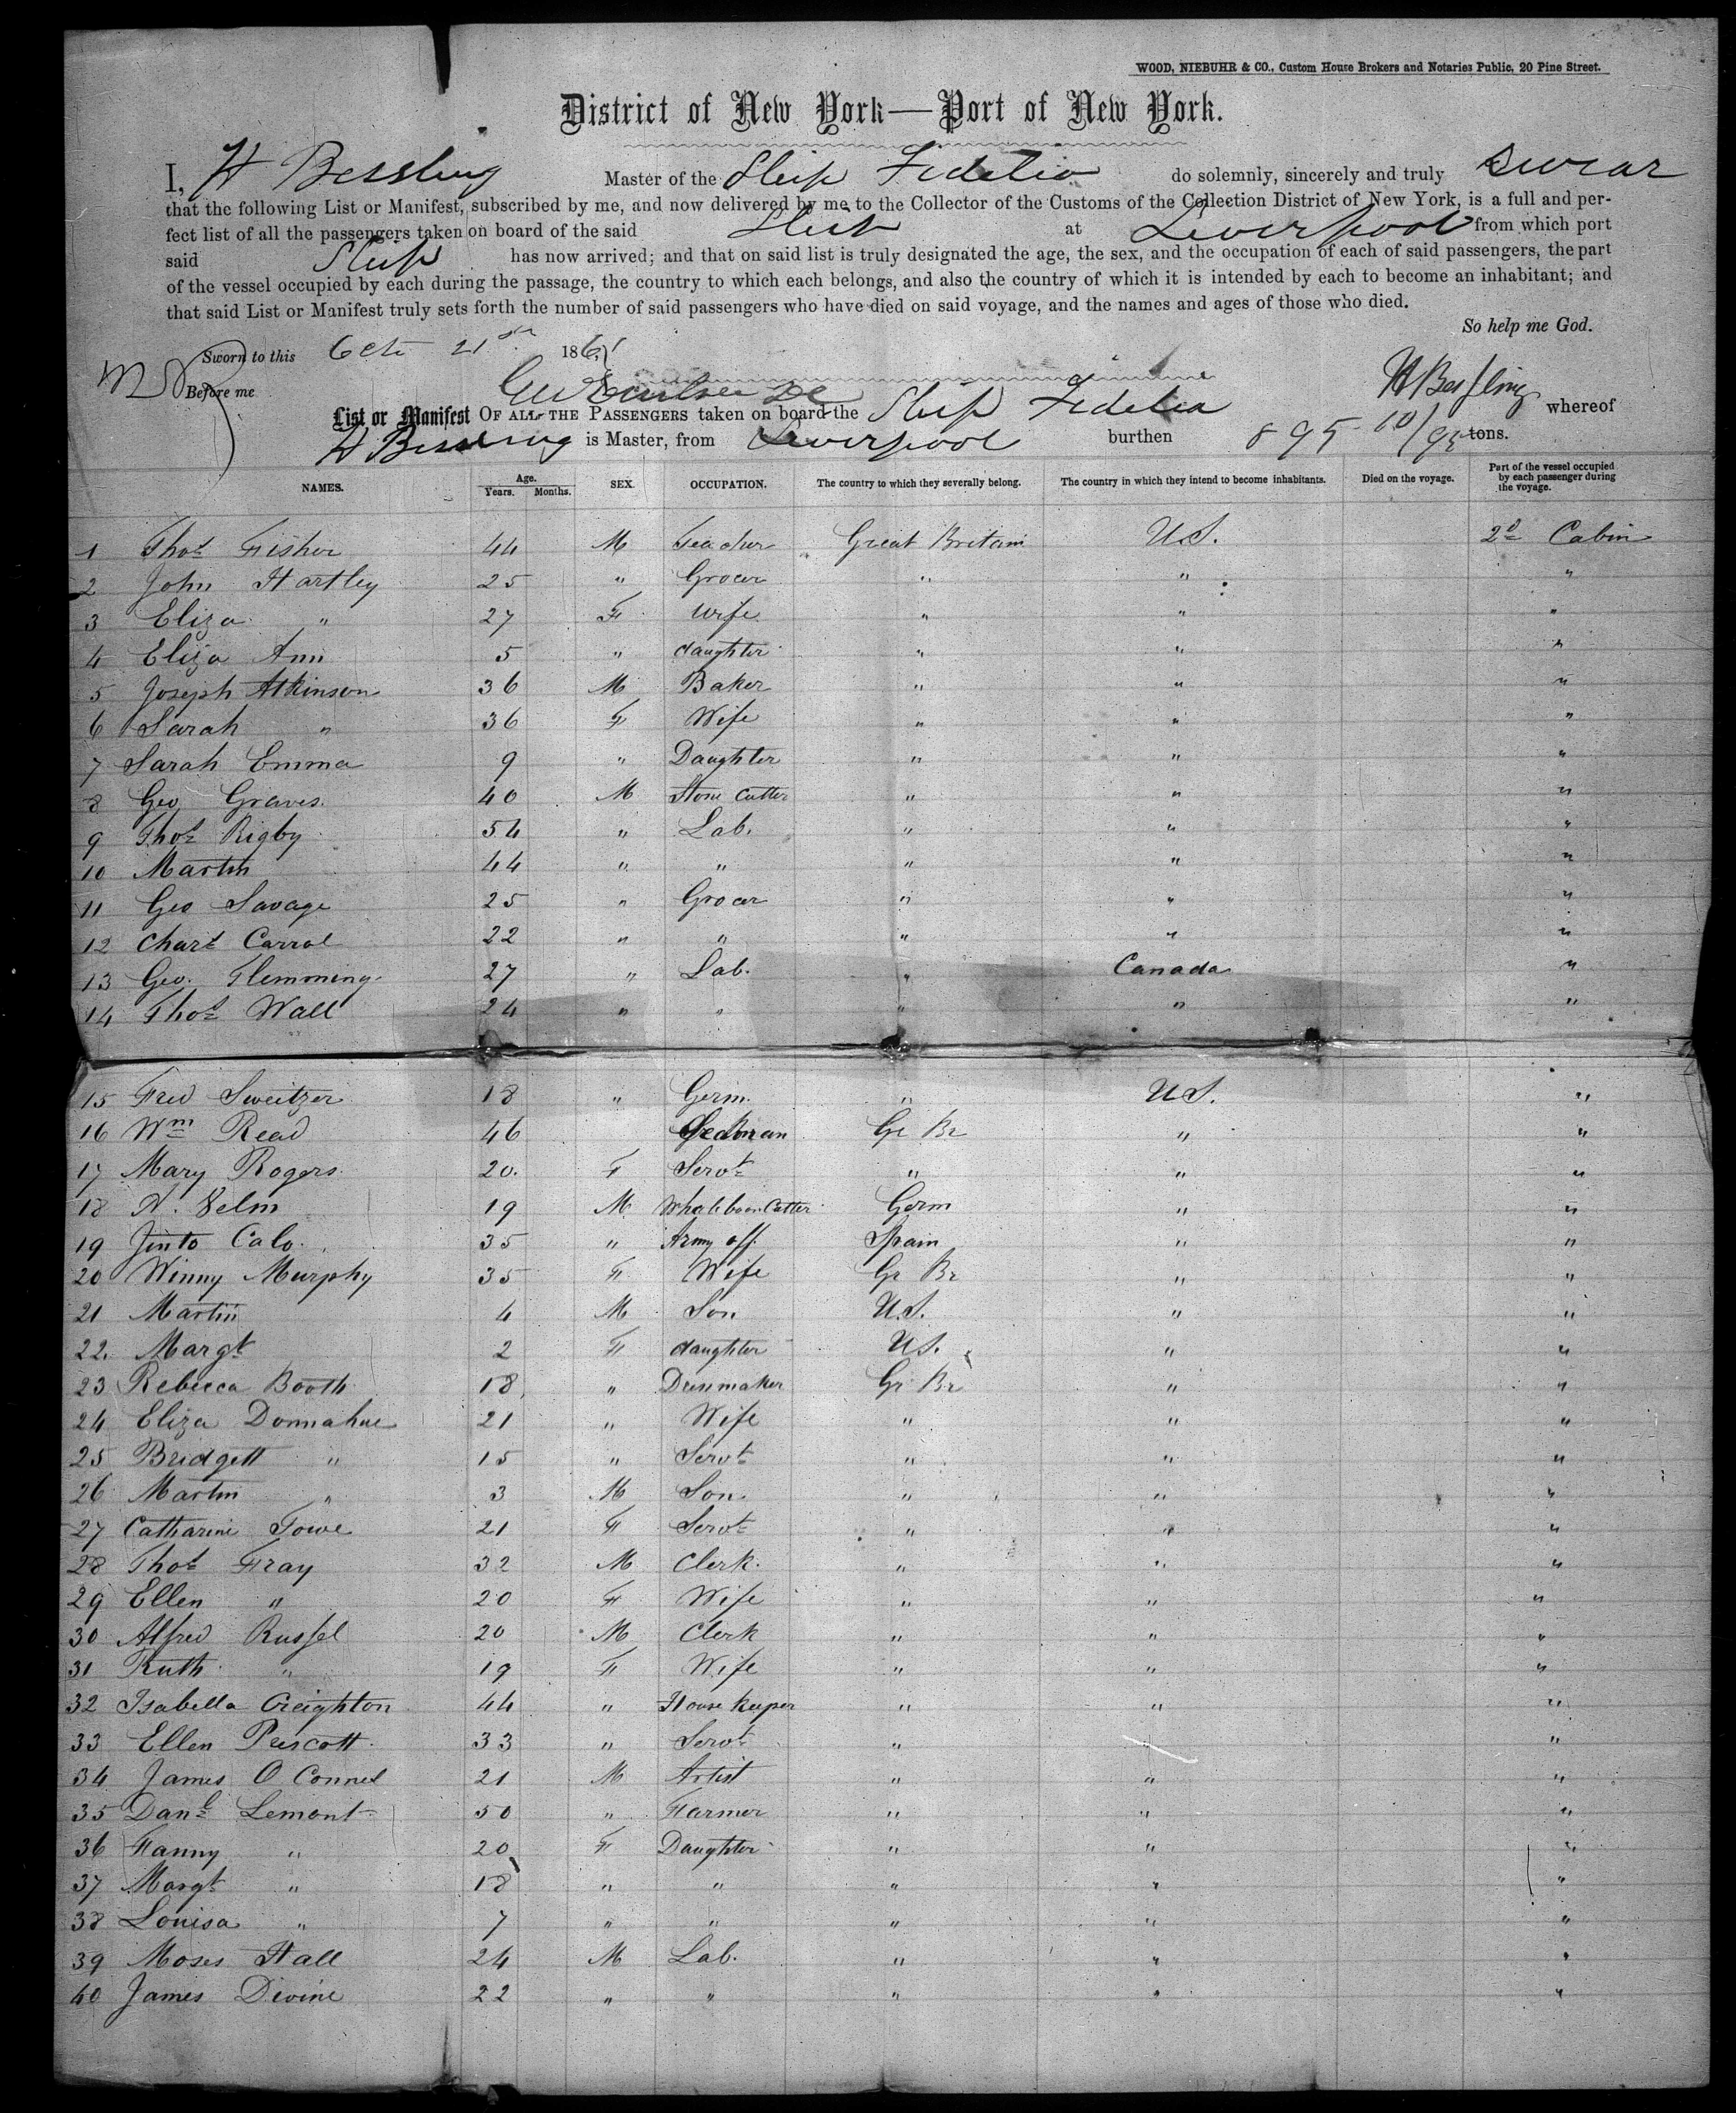 WOOD, NIEBUHR & CO., Custom House Brokers and Notaries Public, 20 Pine Street.
District of New York—Port of New York.
I, H Bessling Master of the Ship Fidelio do solemnly, sincerely and truly swear
that the following List or Manifest, subscribed by me, and now delivered by me to the Collector of the Customs of the Collection District of New York, is a full and per-
fect list of all the passengers taken on board of the said Ship at Liverpool from which port
said Ship has now arrived; and that on said list is truly designated the age, the sex, and the occupation of each of said passengers, the part
of the vessel occupied by each during the passage, the country to which each belongs, and also the country of which it is intended by each to become an inhabitant; and
that said List or Manifest truly sets forth the number of said passengers who have died on said voyage, and the names and ages of those who died.
So help me God.
Sworn to this Oct 21st 1861
Before me H Bessling
List or Manifest OF ALL THE PASSENGERS taken on board the Ship Fidelia whereof
H Bessling is Master, from Liverpool burthen 895 10/95 tons.
NAMES. Age. Years. Months. SEX. OCCUPATION. The country to which they severally belong. The country in which they intend to become inhabitants. Died on the voyage. Part of the vessel occupied by each passenger during the voyage.
1 Thos Fisher 44 M Teacher Great Britain U.S. 2d Cabin
2 John Hartley 25 " Grocer " " "
3 Eliza " 27 F Wife " " "
4 Eliza Ann 5 " daughter " " "
5 Joseph Atkinson 36 M Baker " " "
6 Sarah " 36 F Wife " " "
7 Sarah Emma 9 " Daughter " " "
8 Geo Graves 40 M Stone Cutter " " "
9 Thos Rigby 54 " Lab. " " "
10 Martin 44 " " " " "
11 Geo Savage 25 " Grocer " " "
12 Chars Carrol 22 " " " " "
13 Geo. Flemming 27 " Lab. " Canada "
14 Thos Wall 24 " " " " "
15 Fred Sweitzer 18 " Germ. " U.S. "
16 Wm Read 46 Gr Br " "
17 Mary Rogers 20. F Servt " " "
18 N. Selm 19 M Whaleboon Cutter Germ " "
19 Jinto Calo. 35 " Army off. Spain " "
20 Winny Murphy 35 F Wife Gr Br " "
21 Martin 4 M Son U.S. " "
22. Margt 2 F daughter U.S. " "
23 Rebecca Booth 18 " Dressmaker Gr Br " "
24 Eliza Donnahue 21 " Wife " " "
25 Bridgett " 15 " Servt " " "
26 Martin " 3 M Son " " "
27 Catharine Towe 21 F Servt " " "
28 Thos Fray 32 M Clerk. " " "
29 Ellen " 20 F Wife " " "
30 Alfred Russel 20 M Clerk " " "
31 Ruth " 19 F Wife " " "
32 Isabella Creighton 44 " House Keeper " " "
33 Ellen Prescott 33 " Servt " " "
34 James O Connel 21 M Artist " " "
35 Danl Lemont 50 " Farmer " " "
36 Fanny " 20 F Daughter " " "
37 Margt " 18 " " " " "
38 Louisa " 7 " " " " "
39 Moses Hall 24 M Lab. " " "
40 James Divine 22 " " " " "